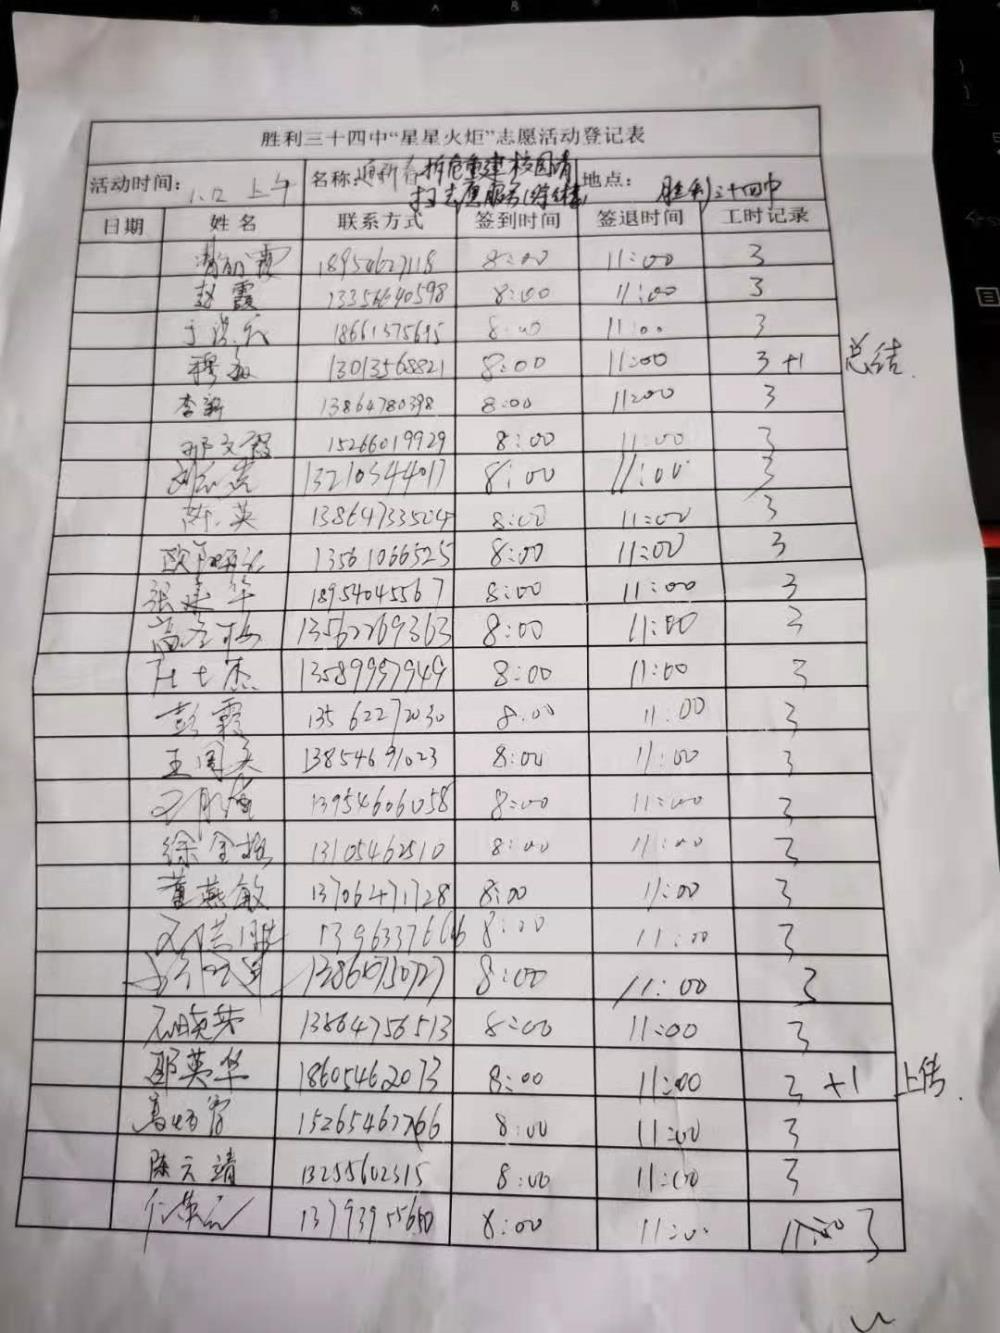 胜利三十四中“星星火炬”志愿活动登记表
活动时间: 1.12 上午 名称: 迎新春拆危重建校园清扫志愿服务(续) 地点: 胜利三十四中
日期 姓名 联系方式 签到时间 签退时间 工时记录
18954627118 8:00 11:00 3
赵霞 13356640598 8:00 11:00 3
18661375695 8:00 11:00 3
穆敏 13013568821 8:00 11:00 3+1 总结.
李新 13864780398 8:00 11:00 3
邢文霞 15266019929 8:00 11:00 3
13210344017 8:00 11:00 3
陈英 13864733504 8:00 11:00 3
13561066525 8:00 11:00 3
张建华 18954045567 8:00 11:00 3
13562269363 8:00 11:00 3
杜士杰 13589997949 8:00 11:00 3
彭霞 13562272030 8:00 11:00 3
王国英 13854691023 8:00 11:00 3
13954606058 8:00 11:00 3
徐金梅 13105462510 8:00 11:00 3
董燕敏 13706471728 8:00 11:00 3
8:00 11:00 3
8:00 11:00 3
石晓芬 13864756513 8:00 11:00 3
邵英华 18605462073 8:00 11:00 3+1 上传.
8:00 11:00 3
陈云靖 13255602315 8:00 11:00 3
8:00 11:00 11:00 3